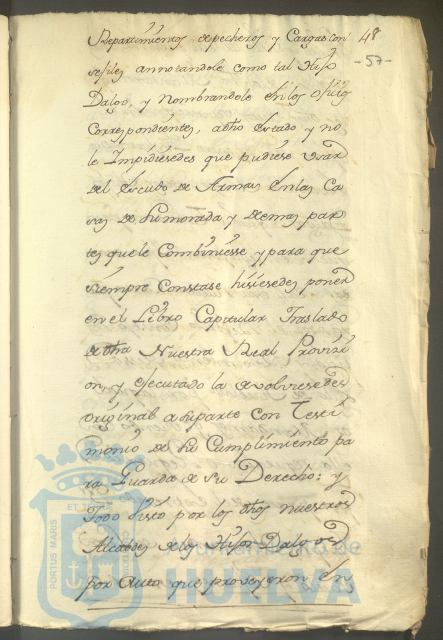 Repartimientos de pecheros y Cargas con 48
sejiles annotandole como tal Hijo -57-
Dalgo, y Nombrandole en los oficios
Correspondientes, a dho Estado y no
le Impidiésedes que pudiese Usar
del Escudo de Armas en las Ca
sas de su morada y demas par
tes que le Combiniesse y para que
siempre Constase hisiesedes poner
en el Libro Capitular Traslado
de dha Nuestra Real Provizi
on, y ejecutado la devolviesedes
original a su parte con Testi
monio de su Cumplimiento pa
ra Guarda de su Derecho: y
Todo Visto por los dhos nuestros
Alcaldes de los Hijos Dalgo
por Auto que proveyeron en
PORTUS MARIS
ET
Ayuntamiento de
HUELVA